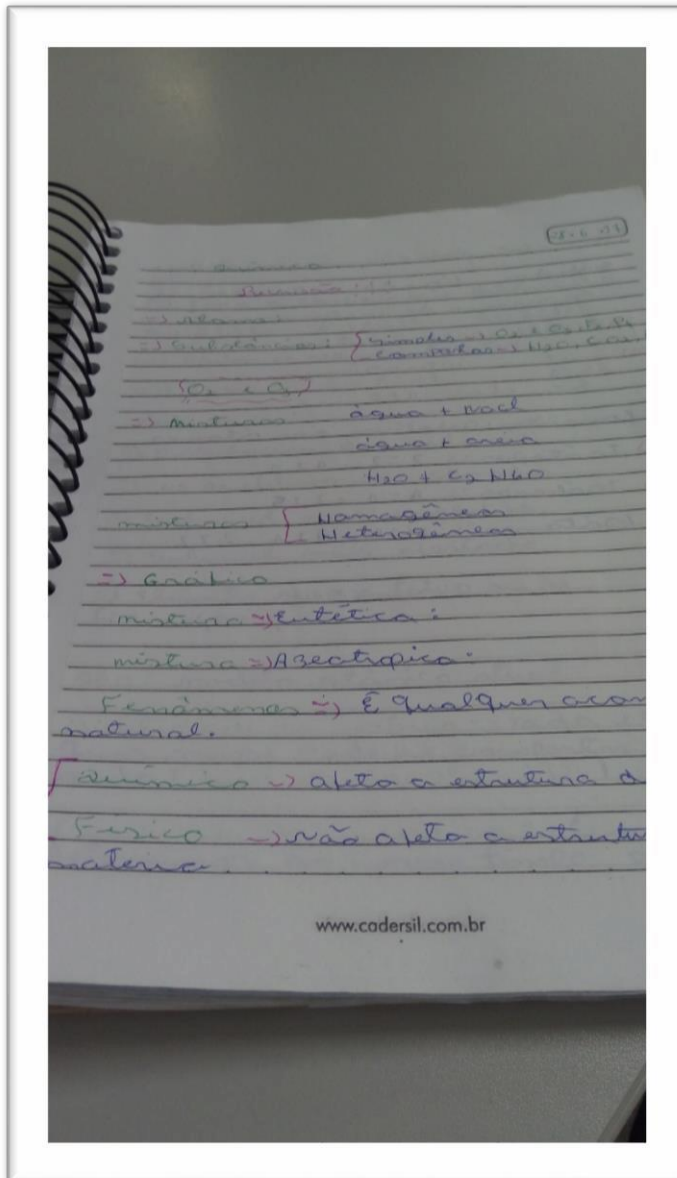 Química
Revisão:
=> Átomo:
=> Substâncias: { Simples -> O2 e O3, P2, P4
Compostas -> H2O, CO2,
(O2 e O3)
=> Misturas água + Nacl
água + areia
H2O + C2 H6O
misturas [ Homogêneas
Heterogêneas
=> Gráfico
mistura => Eutética:
mistura => Azeotrópica:
Fenômenos => É qualquer acon
natural.
Químico -> afeta a estrutura d
Físico -> Não afeta a estrutu
materia
www.cadersil.com.br